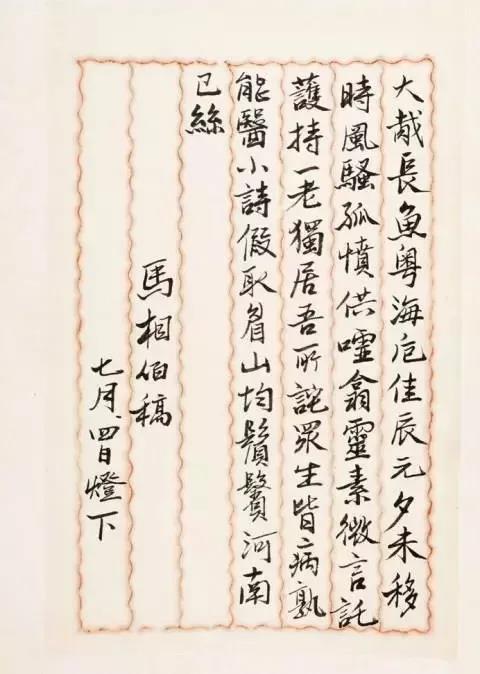 大胾長魚粵海卮佳辰元夕未移
時風騷孤憤供噓翕靈素微言託
護持一老獨居吾所詫眾生皆病孰
能醫小詩假取眉山均鬚鬢河南
已絲
馬相伯稿
七月四日燈下